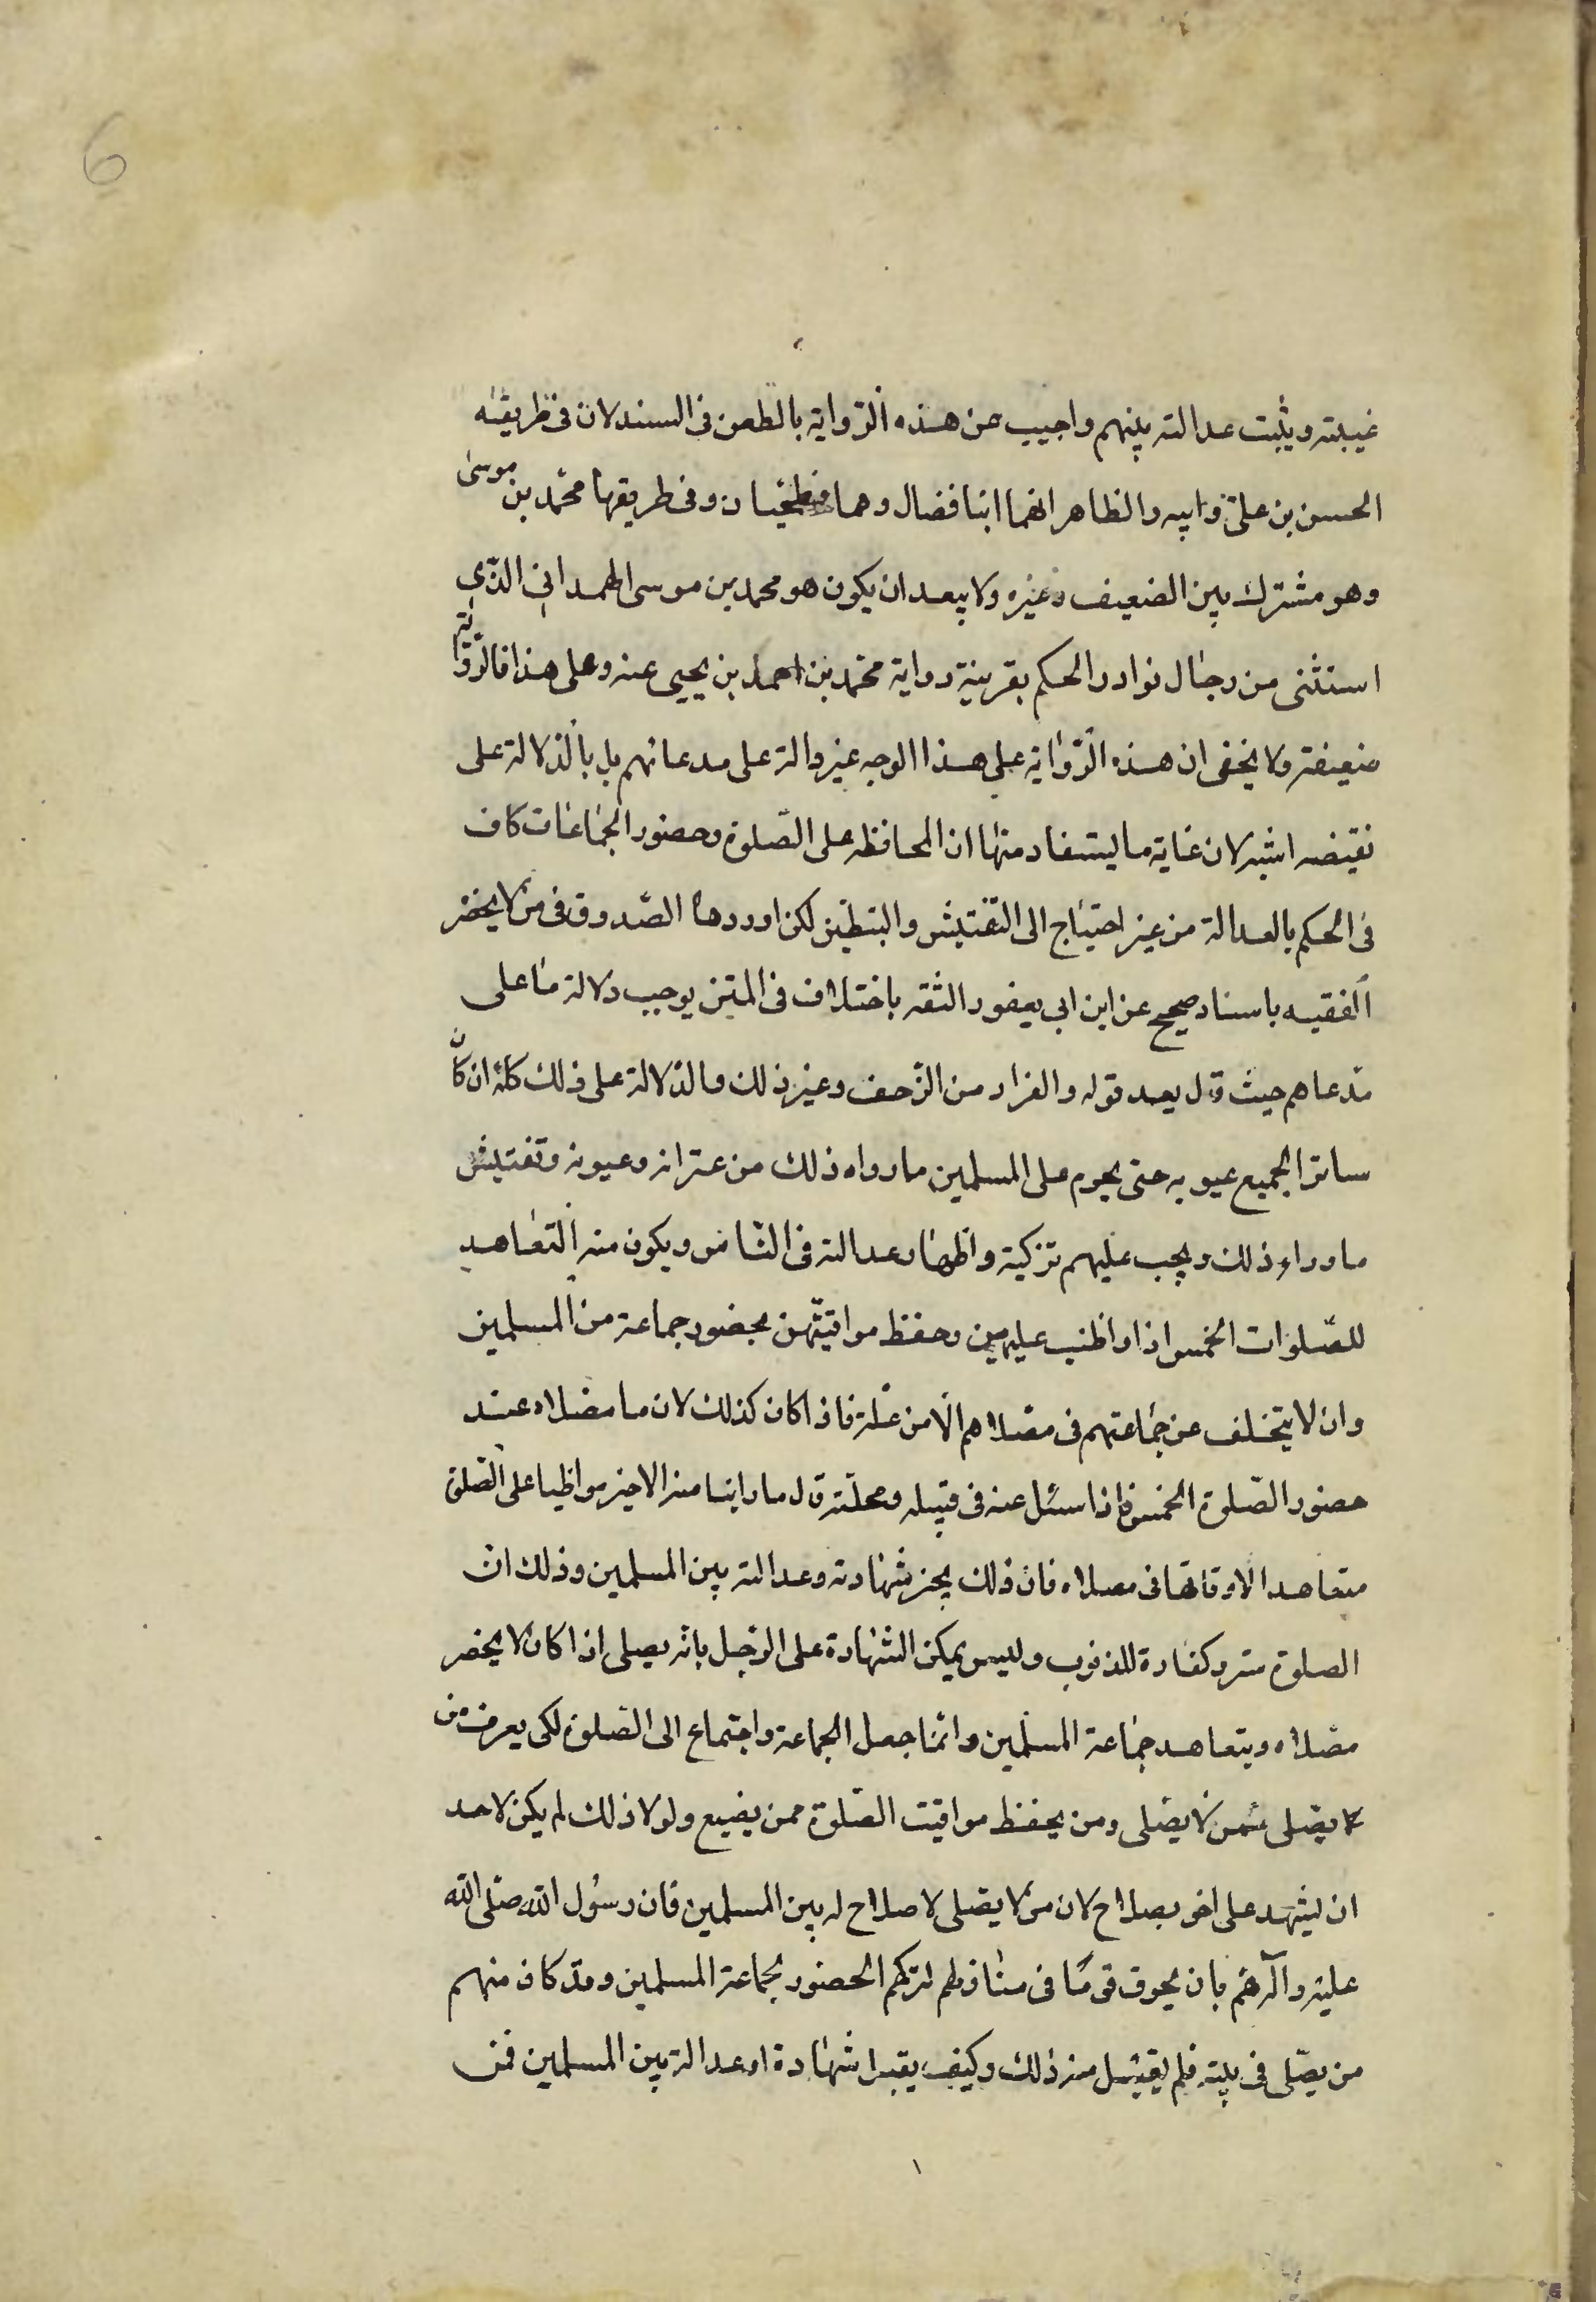 6
غيبته ويثبت عدالته بينهم واجيب عن هذه الرّواية بالطعن فى السند لان فى طريقه
الحسن بن علىّ وابيه والظاهر انهما ابنا فضال وهما فطحيّان وفى طريقها محمّد بن موسىٰ
وهو مشترك بين الضعيف وغيره ولا يبعد ان يكون هو محمد بن موسى الهمدانى الذّى
استثنى من رجال نوادر الحكم بقرينة رواية محمّد بن احمد بن يحيى عنه وعلى هذا فالرّواية
ضعيفة ولا يخفى ان هذه الرّواية على هذا الوجه غير دالة على مدعائهم بل بالدّلالة على
نقيضه اشبه لان غاية ما يستفاد منها ان المحافظه على الصّلوة وحضور الجماعات كاف
فى الحكم بالعدالة من غير احتياج الى التفتيش والتبطين لكن اوردها الصّدوق فى من لا يحضر
الفقيه باسناد صحيح عن ابن ابى يعفور الثقه باختلاف فى المتن يوجب دلالة ما على
مدّعاهم حيث قال بعد قوله والفرار من الزّحف وغير ذلك والدّلالة على ذلك كلّه ان كان
ساترا لجميع عيوبه حتى يحرم على المسلمين ما رواه ذلك من عتراته وعيوبه وتفتيش
ما وراء ذلك ويجب عليهم تزكيته واظهار عدالته فى النّاس ويكون منه التعاهد
للصّلوات الخمس اذا واظب عليهن وحفظ مواقيتّهن بحضور جماعة من المسلمين
وان لا يتخلف عن جماعتهم فى مصّلاهم الّا من علّة فاذا كان كذلك لان ما مصلاه عند
حضور الصّلوة الخمس فاذا سئل عنه فى قبيله ومحلّته قال ما راينا منه الا خير مواظبا على الصّلوة
متعاهدا لاوقاتها فى مصلاه فان ذلك يجز شهادته وعدالته بين المسلمين وذلك انّ
الصلوة ستر وكفارة للذنوب وليس يمكن الشهادة على الرّجل بانّه يصلى اذا كان لا يحضر
مصّلاه ويتعاهد جماعة المسلمين وانّما جعل الجماعة واجتماع الى الصّلوة لكى يعرف من
لا يصّلى ممن لا يصّلى ومن يحفظ مواقيت الصّلوة ممن يضيع ولولا ذلك لم يكن لاحد
ان يشهد على اخر بصلاح لان من لا يصّلى لا صلاح له بين المسلمين فان رسول الله صلّى الله
عليه وآله همّ بان يحرق قوما فى منازلهم لتركهم الحضور بجماعة المسلمين وقد كان منهم
من يصّلى فى بيته فلم يقبل منه ذلك وكيف يقبل شهادة او عدالة بين المسلمين فمن